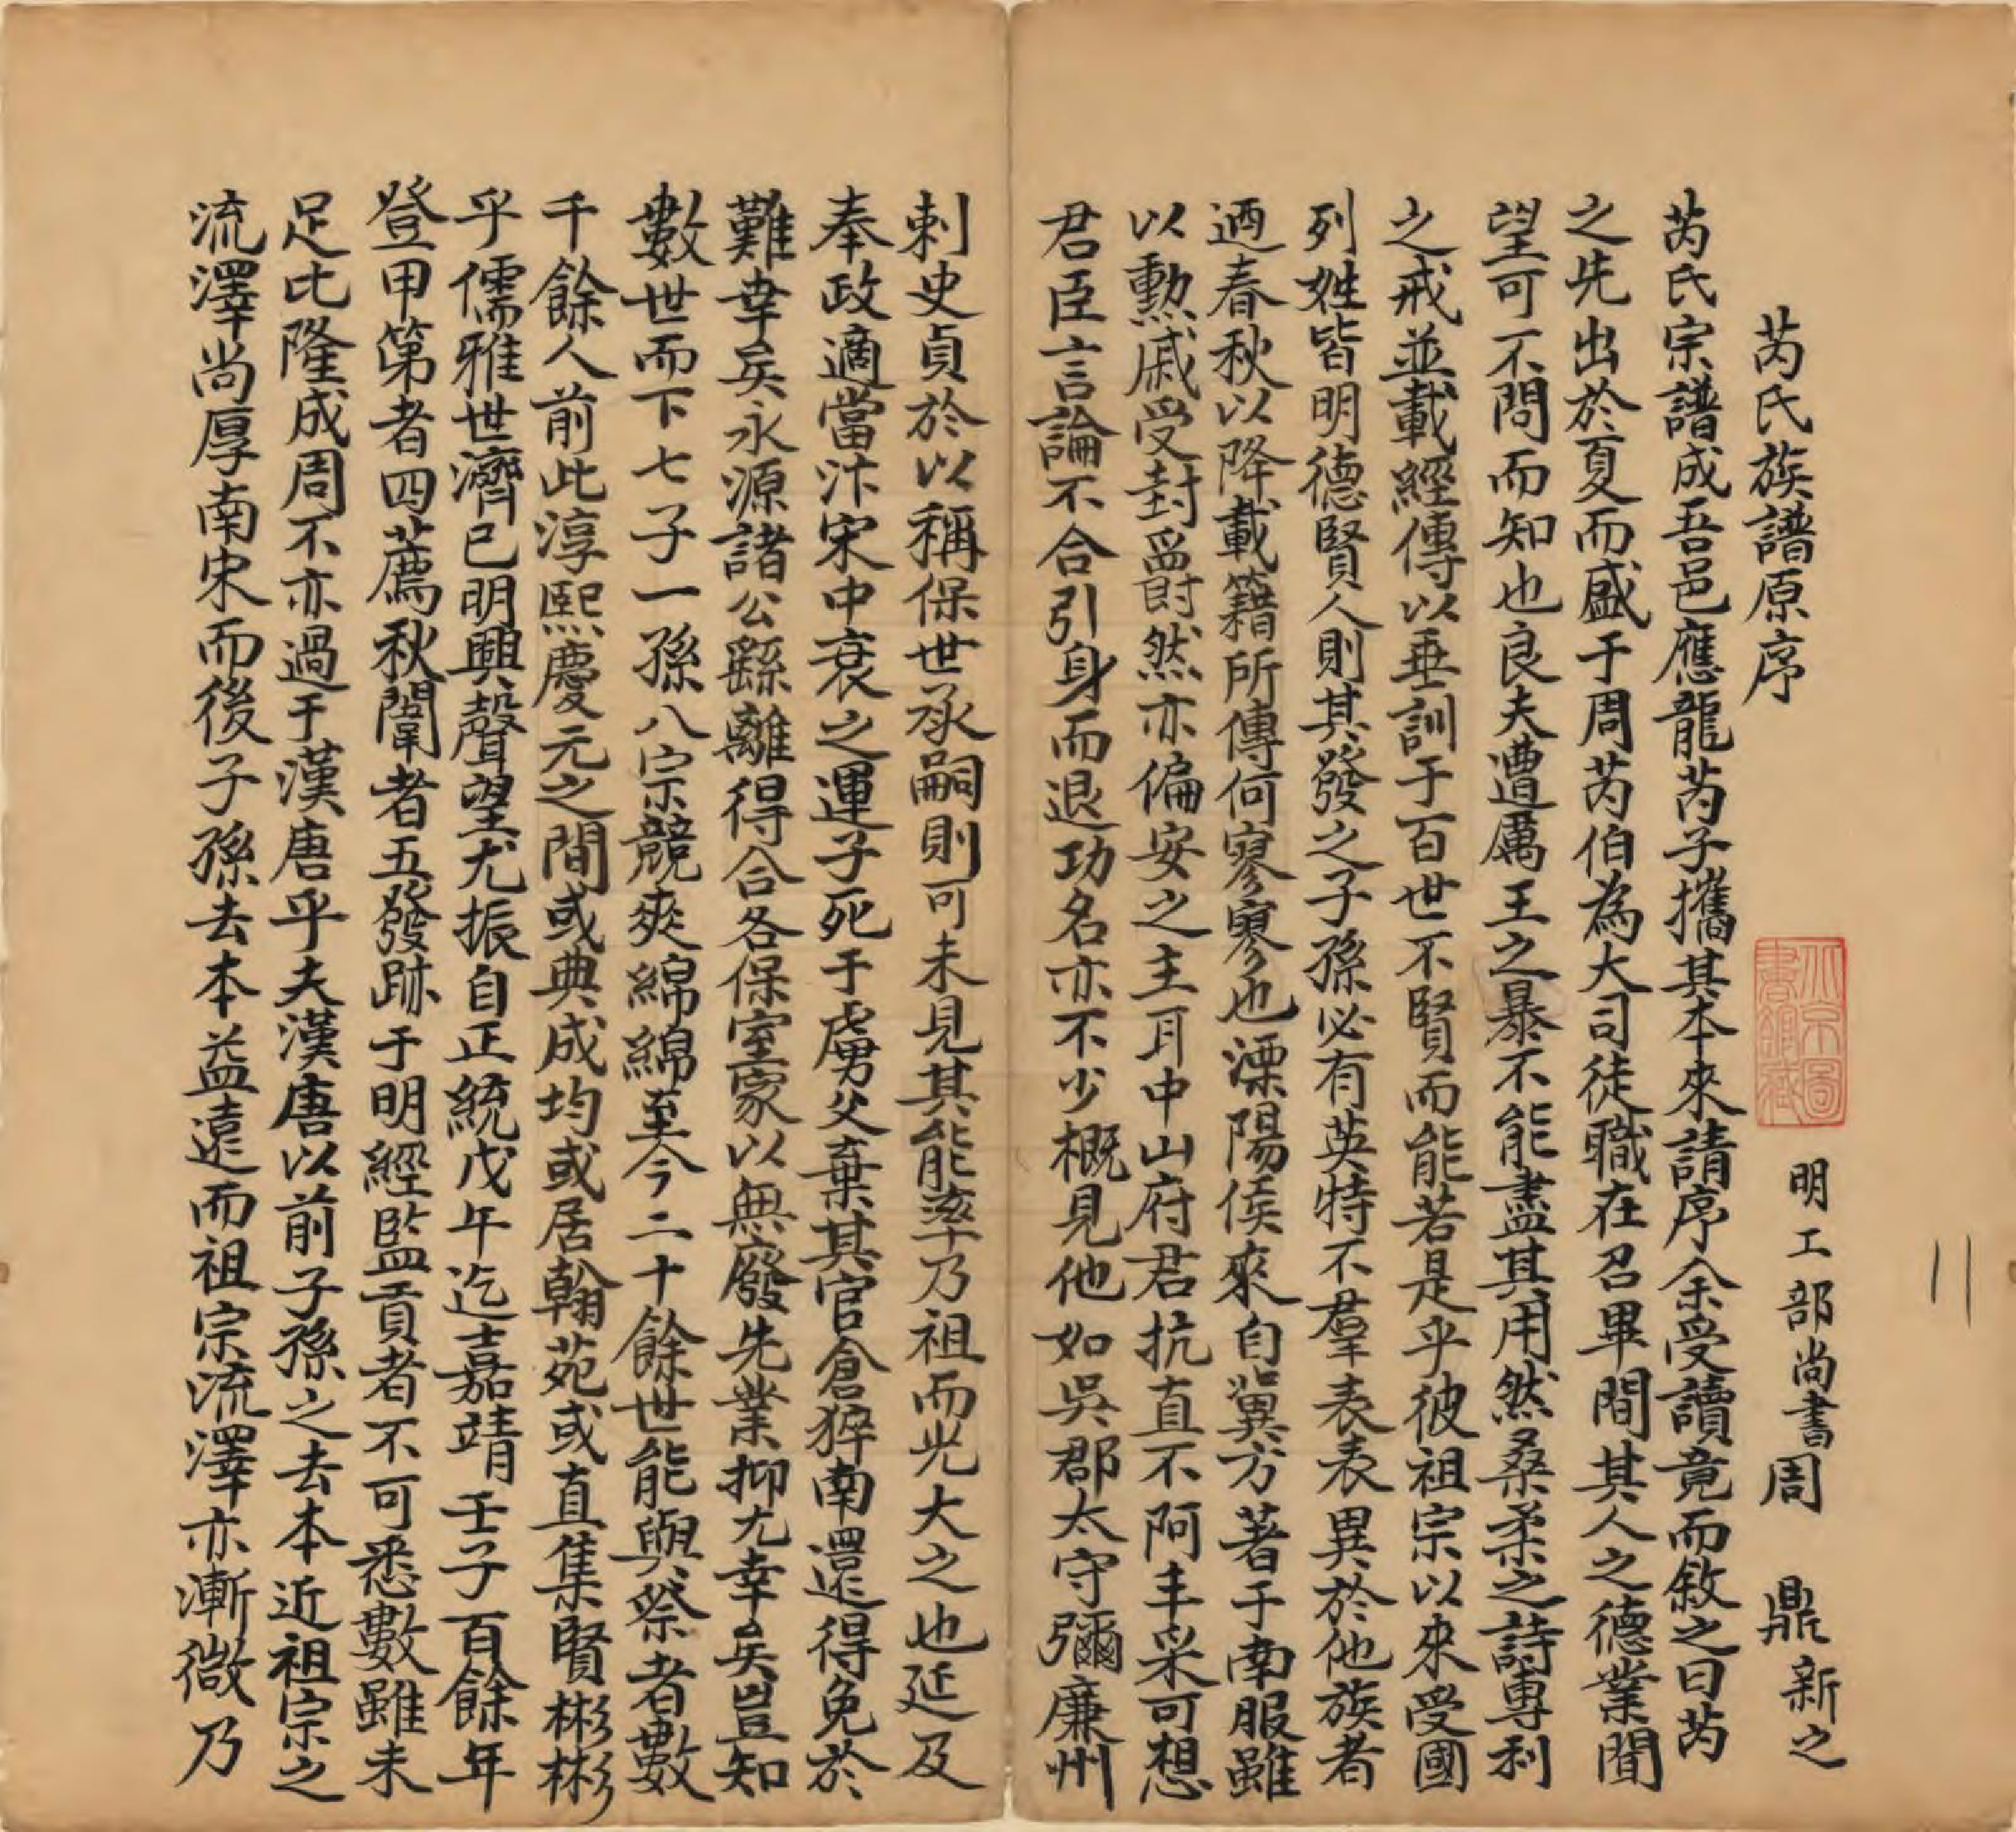 芮氏族譜原序
明工部尚書周鼎新之
芮氏宗譜成吾邑應龍芮子攜其本來請序余受讀竟而敘之曰芮
之先出於夏而盛于周芮伯為大司徒職在召畢間其人之德業聞
望可不問而知也良夫遭厲王之暴不能盡其用然桑柔之詩專利
之戒並載經傳以垂訓于百世不賢而能若是乎彼祖宗以來受國
列姓皆明德賢人則其發之子孫必有英特不羣表表異於他族者
迺春秋以降載籍所傳何寥寥也溧陽侯來自冀方著于南服雖
以勲戚受封爵然亦偏安之主耳中山府君抗直不阿丰采可想
君臣言論不合引身而退功名亦不少概見他如吳郡太守彌廉州
刺史貞於以稱保世承嗣則可未見其能率乃祖而光大之也延及
奉政適當汴宋中衰之運子死于虜父棄其官倉猝南還得免於
難幸矣永源諸公繇離得合各保室家以無廢先業抑尤幸矣豈知
數世而下七子一孫八宗競爽綿綿至今二十餘世能與祭者數
千餘人前此淳熙慶元之間或典成均或居翰苑或直集賢彬彬
乎儒雅世濟已明興聲望尤振自正統戊午迄嘉靖壬子百餘年
登甲第者四薦秋闈者五發跡于明經監貢者不可悉數雖未
足比隆成周不亦過于漢唐乎夫漢唐以前子孫之去本近祖宗之
流澤尚厚南宋而後子孫去本益遠而祖宗流澤亦漸微乃